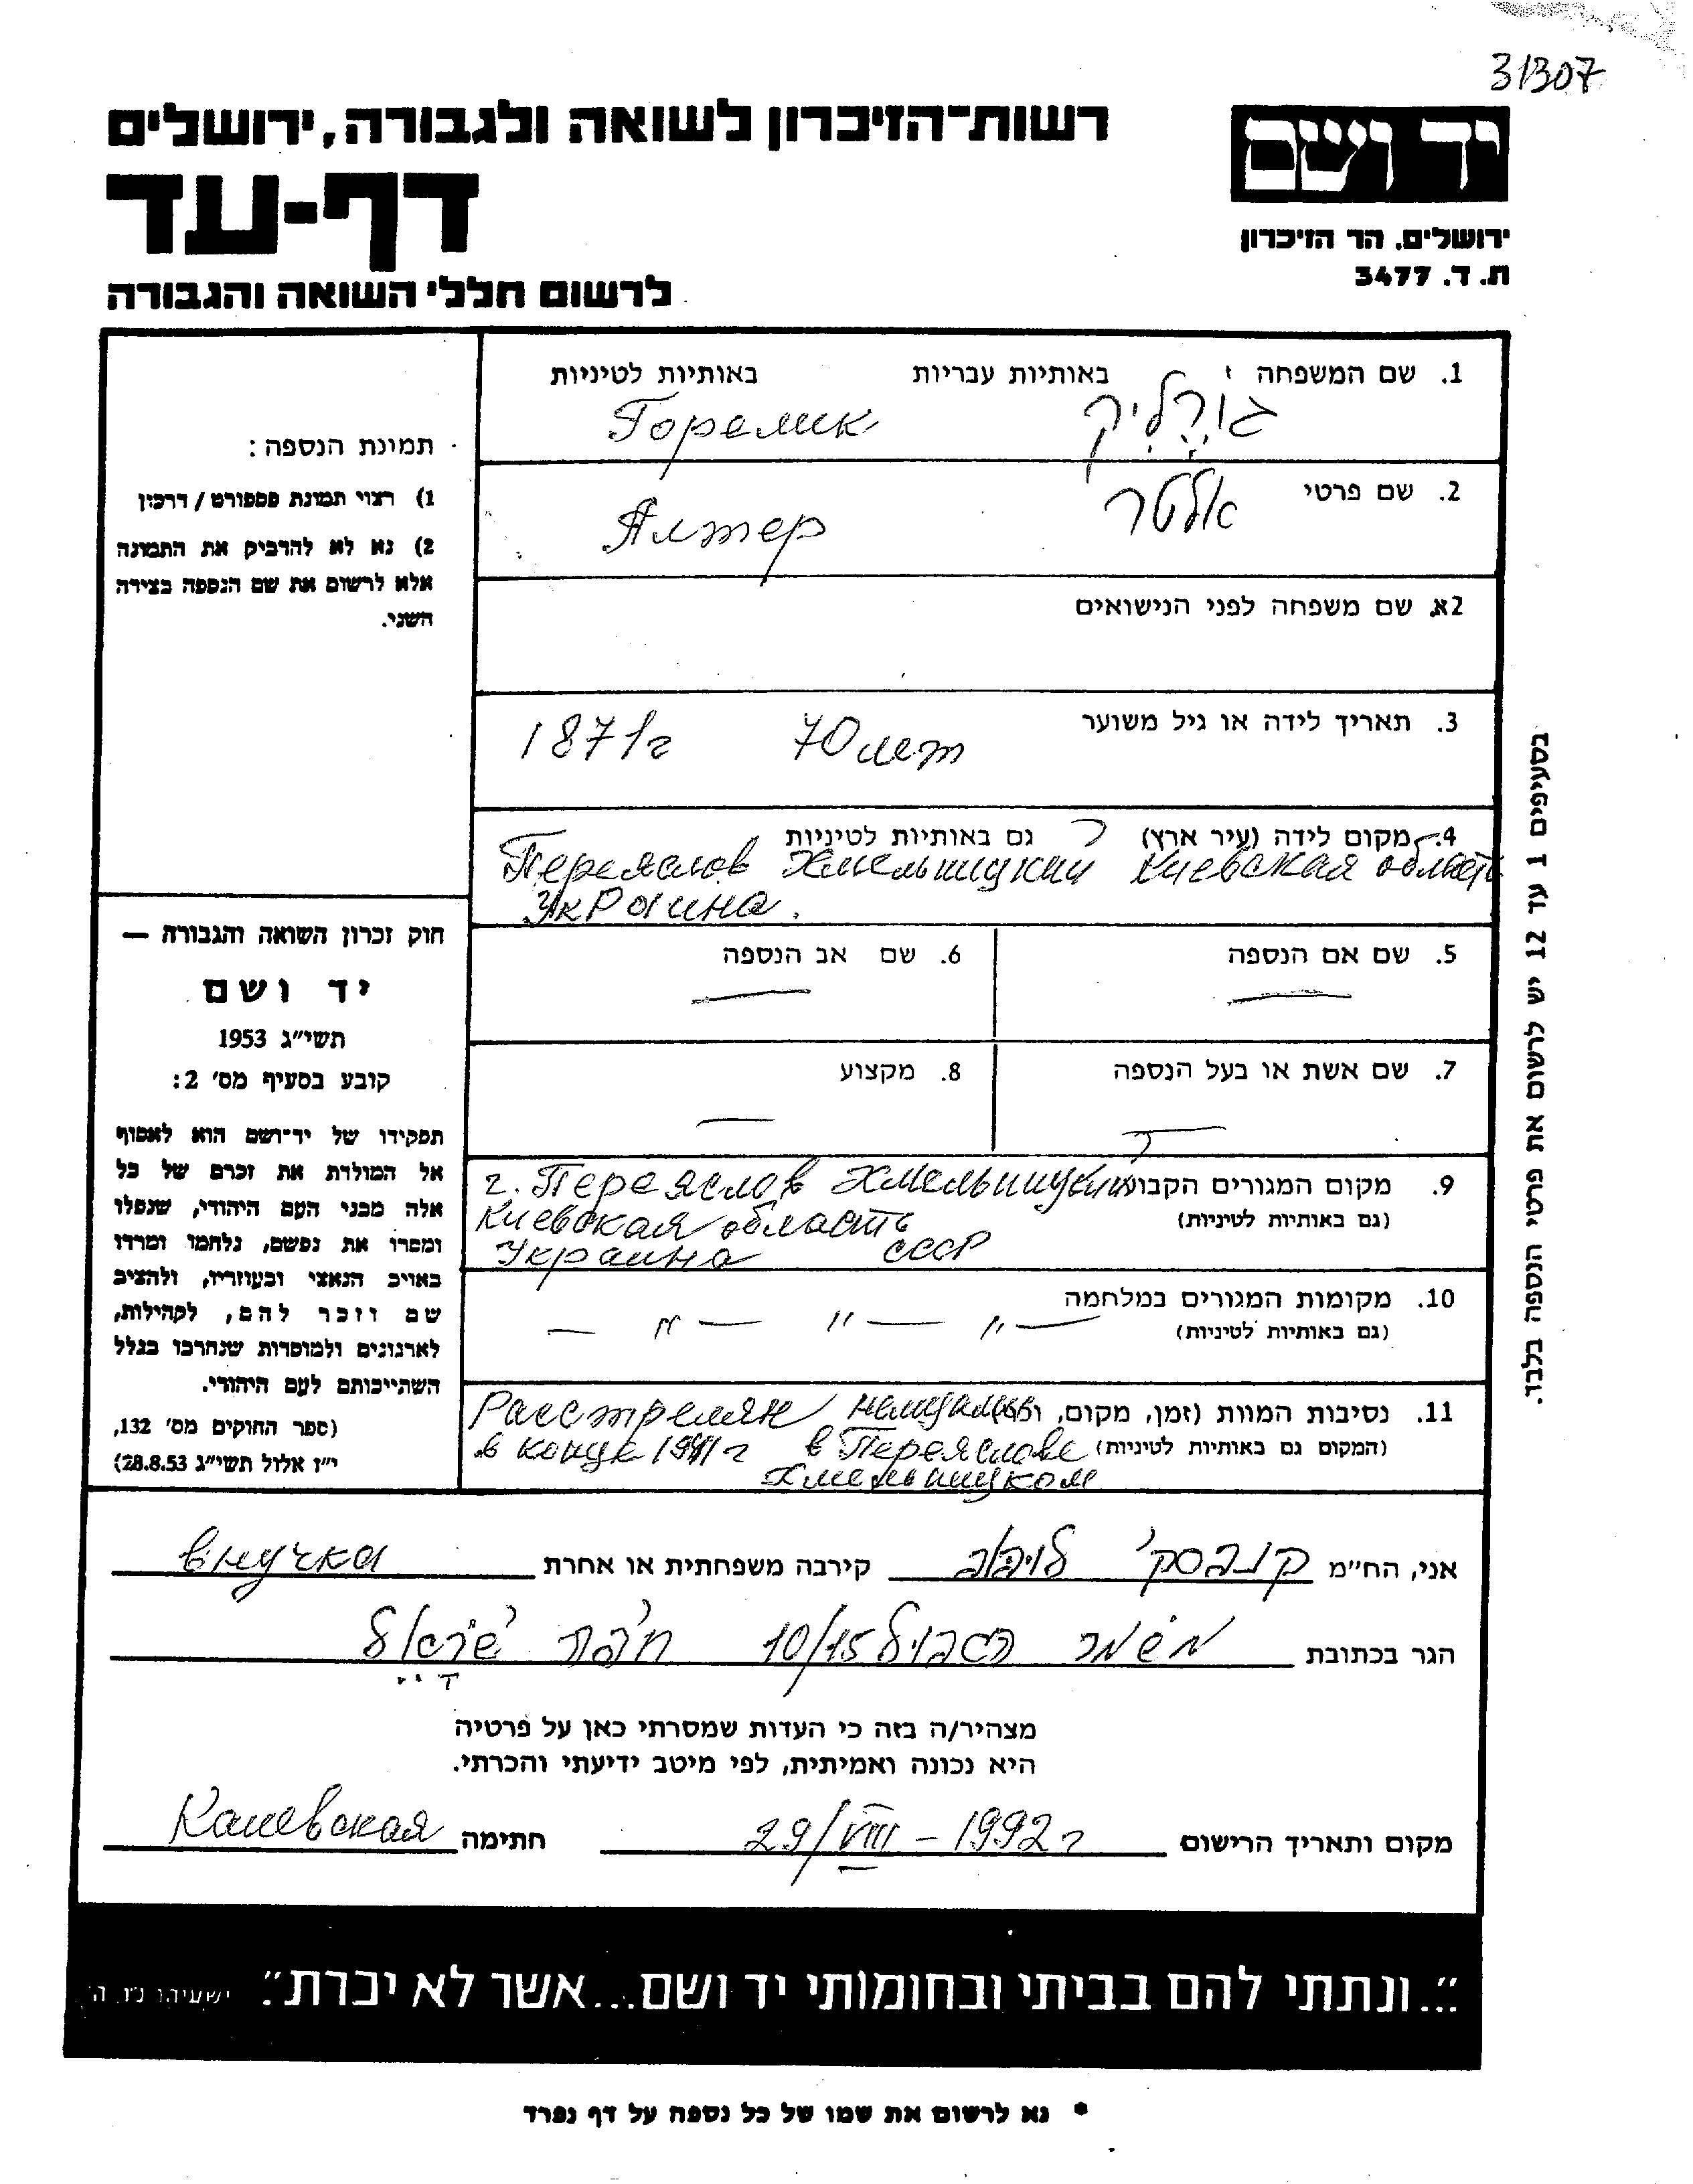 31307
יד ושם
ירושלים. הר הזיכרון
ת. ד. 3477
רשות־הזיכרון לשואה ולגבורה, ירושלים
דף-עד
לרשום חללי השואה והגבורה
1. שם המשפחה באותיות עבריות באותיות לטיניות
Горелик
2. שם פרטי אלטר Алтер
2א. שם משפחה לפני הנישואים
3. תאריך לידה או גיל משוער 70 лет 1871г
4. מקום לידה (עיר ארץ) גם באותיות לטיניות
Переяслов Хмельницкий Киевская область
Украина.
5. שם אם הנספה —
6. שם אב הנספה —
7. שם אשת או בעל הנספה —
8. מקצוע —
9. מקום המגורים הקבוע
(גם באותיות לטיניות)
г. Переяслов Хмельницкий
Киевская область
Украина СССР
10. מקומות המגורים במלחמה
(גם באותיות לטיניות)
— " — " — " —
11. נסיבות המוות (זמן, מקום,
(המקום גם באותיות לטיניות)
Расстрелян немцами
в конце 1941г в Переяслове
Хмельницком
תמונת הנספה:
1) רצוי תמונת פספורט / דרכון
2) נא לא להדביק את התמונה
אלא לרשום את שם הנספה בצידה
השני.
חוק זכרון השואה והגבורה —
יד ושם
תשי״ג 1953
קובע בסעיף מס׳ 2:
תפקידו של יד־ושם הוא לאסוף
אל המולדת את זכרם של כל
אלה מבני העם היהודי, שנפלו
ומסרו את נפשם, נלחמו ומרדו
באויב הנאצי ובעוזריו, ולהציב
שם וזכר להם, לקהילות,
לארגונים ולמוסדות שנחרבו בגלל
השתייכותם לעם היהודי.
(ספר החוקים מס׳ 132,
י״ז אלול תשי״ג 28.8.53)
בסעיפים 1 עד 12 יש לרשום את פרטי הנספה בלבד.
אני, הח״מ קירבה משפחתית או אחרת внучка
הגר בכתובת משמר הגבול 10/15
מצהיר/ה בזה כי העדות שמסרתי כאן על פרטיה
היא נכונה ואמיתית, לפי מיטב ידיעתי והכרתי.
מקום ותאריך הרישום 29/VIII – 1992г חתימה Каневская
״...ונתתי להם בביתי ובחומותי יד ושם...אשר לא יכרת״. ישעיהו נ״ו, ה׳
* נא לרשום את שמו של כל נספה על דף נפרד